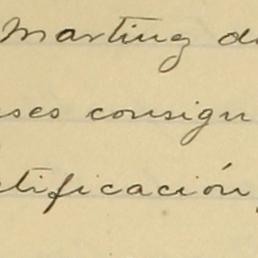 Martinz de
ses consigu
tificación,